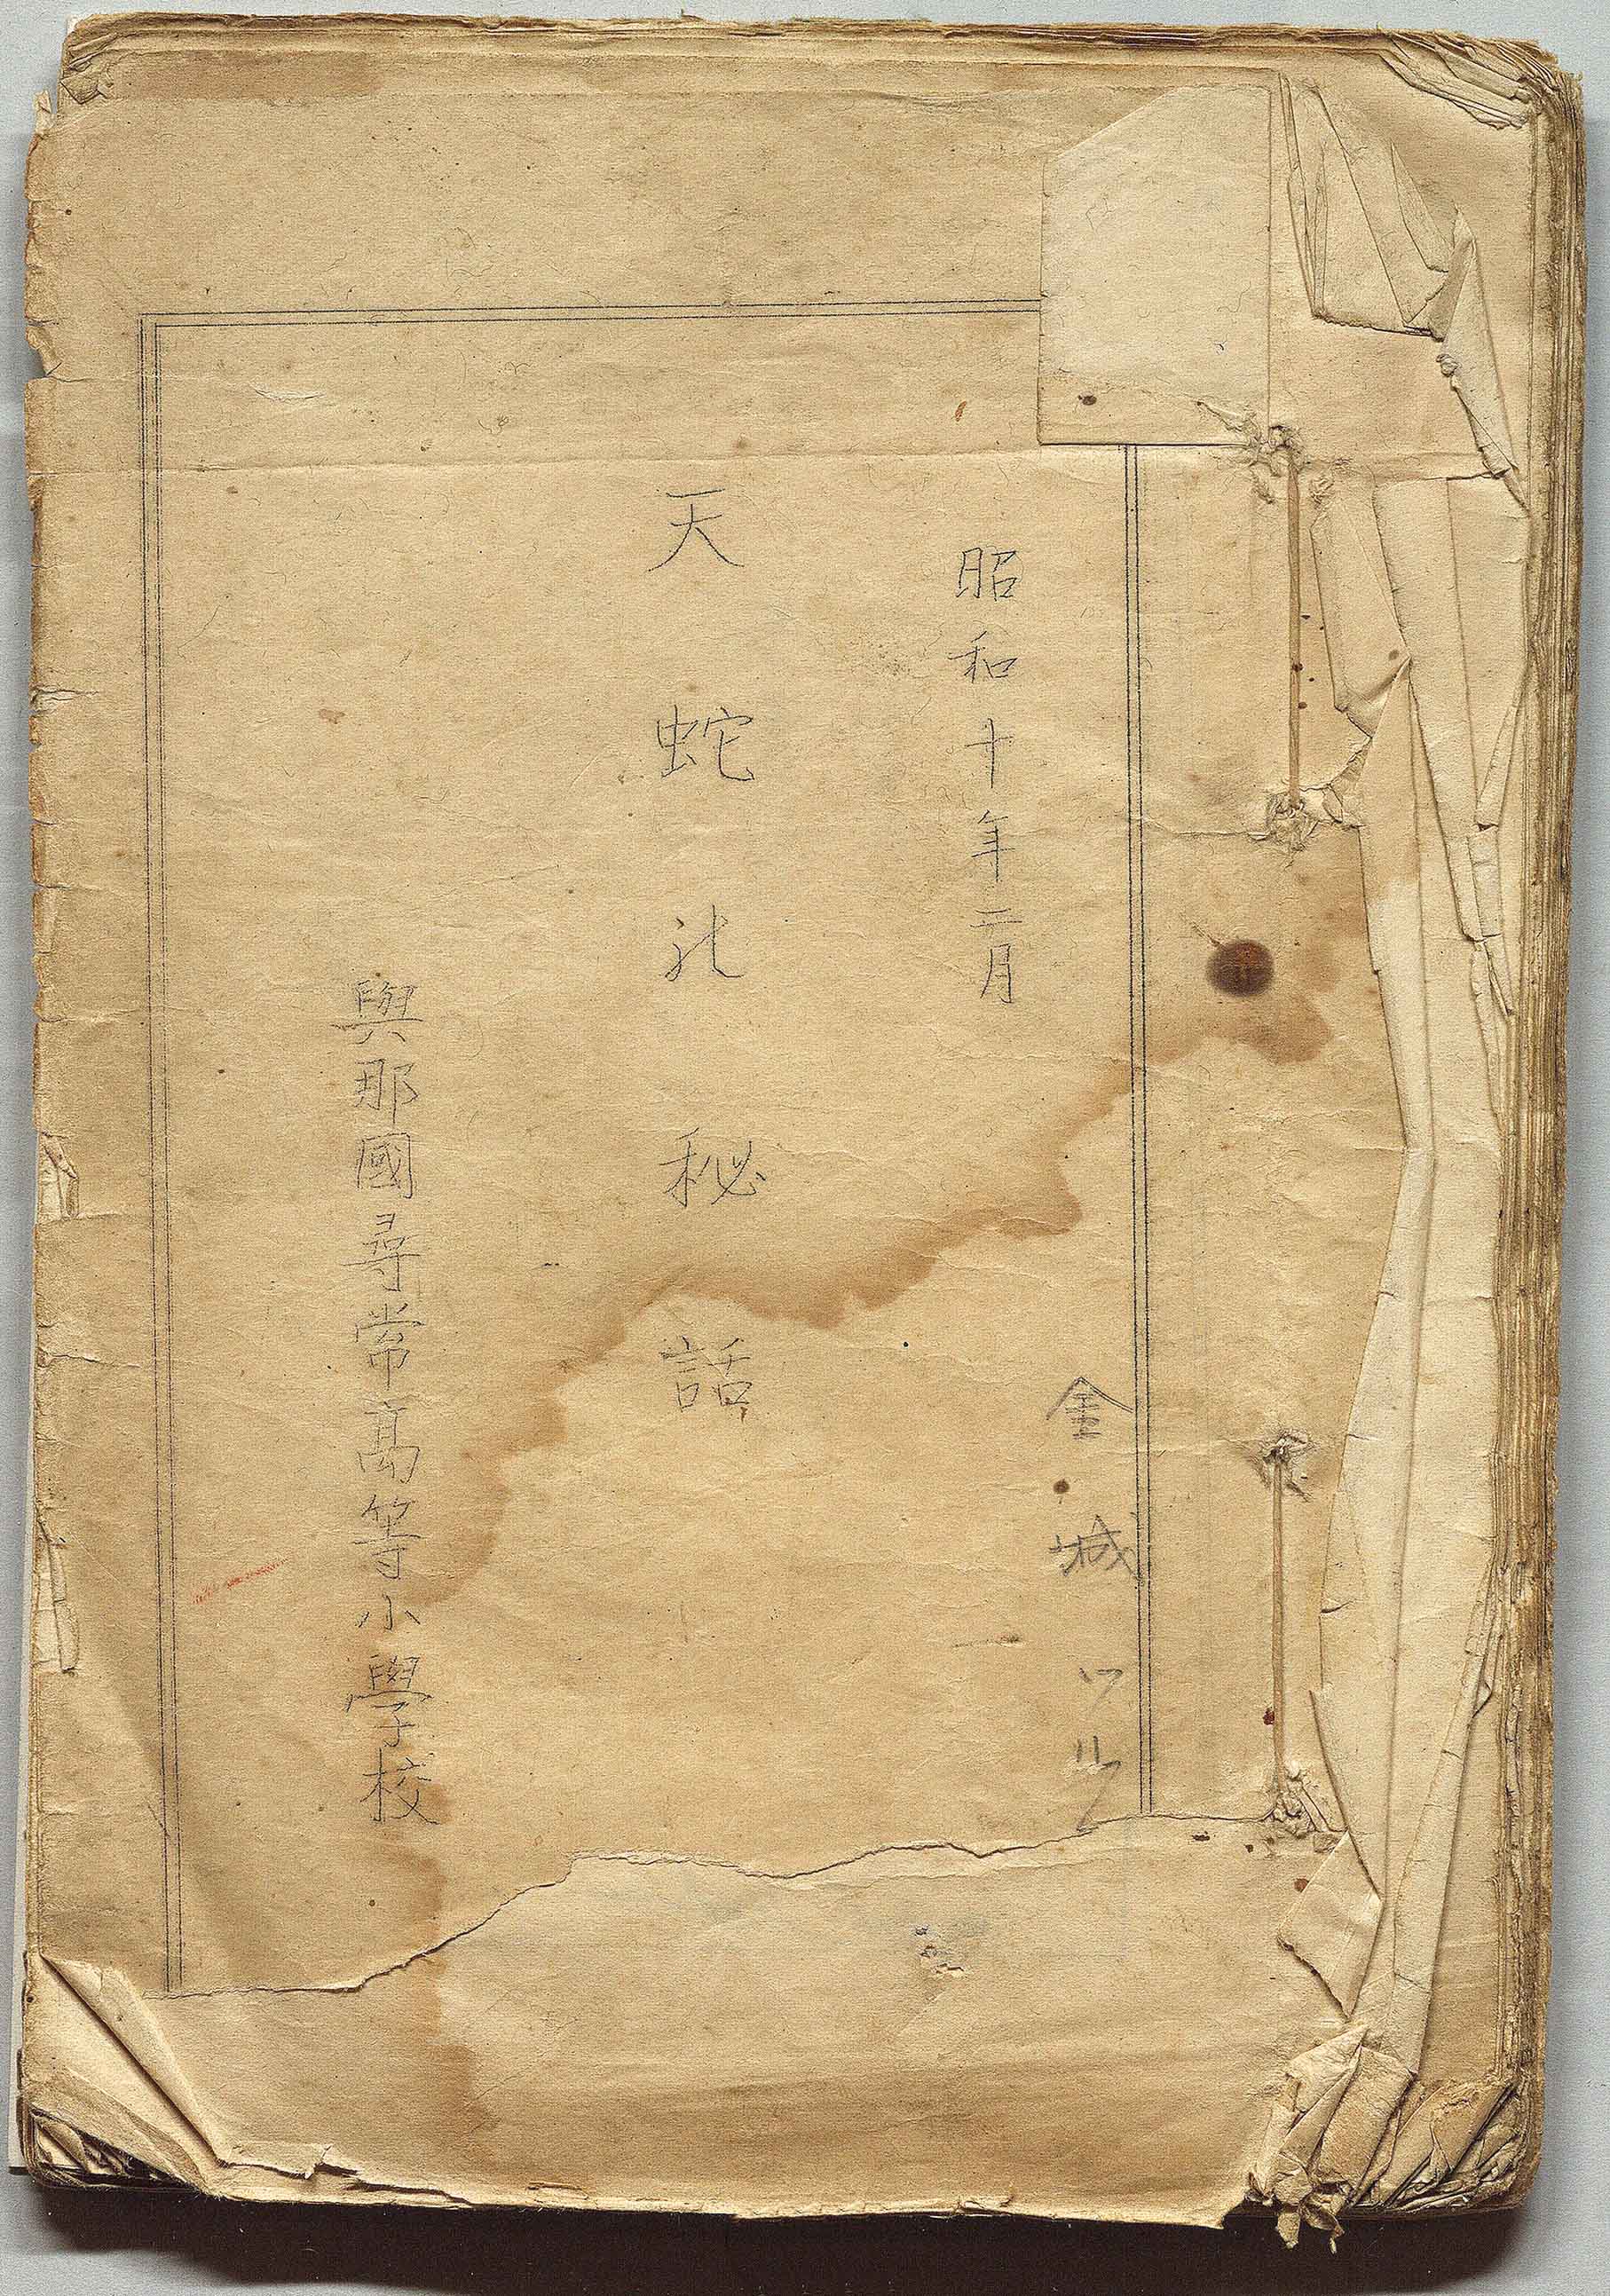 昭和十年二月
金城
天蛇北秘話
與那國尋常高等小學校